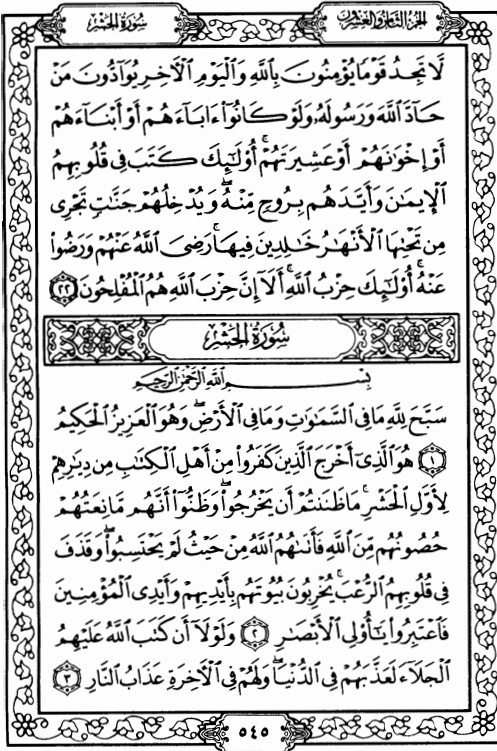 الجزء الثامن والعشرون
سورة الحشر
لَّا تَجِدُ قَوْمًا يُؤْمِنُونَ بِاللَّهِ وَالْيَوْمِ الْآخِرِ يُوَآدُّونَ مَنْ
حَآدَّ اللَّهَ وَرَسُولَهُ وَلَوْ كَانُوٓا۟ ءَابَآءَهُمْ أَوْ أَبْنَآءَهُمْ
أَوْ إِخْوَٰنَهُمْ أَوْ عَشِيرَتَهُمْ ۚ أُو۟لَٰٓئِكَ كَتَبَ فِى قُلُوبِهِمُ
الْإِيمَٰنَ وَأَيَّدَهُم بِرُوحٍ مِّنْهُ ۖ وَيُدْخِلُهُمْ جَنَّٰتٍ تَجْرِى
مِن تَحْتِهَا الْأَنْهَٰرُ خَٰلِدِينَ فِيهَا ۚ رَضِىَ اللَّهُ عَنْهُمْ وَرَضُوا۟
عَنْهُ ۚ أُو۟لَٰٓئِكَ حِزْبُ اللَّهِ ۚ أَلَآ إِنَّ حِزْبَ اللَّهِ هُمُ الْمُفْلِحُونَ ٢٢
سُورَةُ الْحَشْرِ
بِسْمِ اللَّهِ الرَّحْمَٰنِ الرَّحِيمِ
سَبَّحَ لِلَّهِ مَا فِى السَّمَٰوَٰتِ وَمَا فِى الْأَرْضِ ۖ وَهُوَ الْعَزِيزُ الْحَكِيمُ
١ هُوَ الَّذِىٓ أَخْرَجَ الَّذِينَ كَفَرُوا۟ مِنْ أَهْلِ الْكِتَٰبِ مِن دِيَٰرِهِمْ
لِأَوَّلِ الْحَشْرِ ۚ مَا ظَنَنتُمْ أَن يَخْرُجُوا۟ ۖ وَظَنُّوٓا۟ أَنَّهُم مَّانِعَتُهُمْ
حُصُونُهُم مِّنَ اللَّهِ فَأَتَىٰهُمُ اللَّهُ مِنْ حَيْثُ لَمْ يَحْتَسِبُوا۟ ۖ وَقَذَفَ
فِى قُلُوبِهِمُ الرُّعْبَ ۚ يُخْرِبُونَ بُيُوتَهُم بِأَيْدِيهِمْ وَأَيْدِى الْمُؤْمِنِينَ
فَاعْتَبِرُوا۟ يَٰٓأُو۟لِى الْأَبْصَٰرِ ٢ وَلَوْلَآ أَن كَتَبَ اللَّهُ عَلَيْهِمُ
الْجَلَآءَ لَعَذَّبَهُمْ فِى الدُّنْيَا ۖ وَلَهُمْ فِى الْآخِرَةِ عَذَابُ النَّارِ ٣
٥٤٥